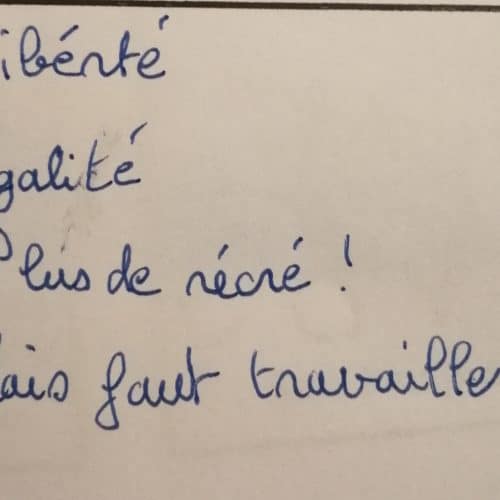 ibérté
galité
Plus de récré !
ais faut travaille